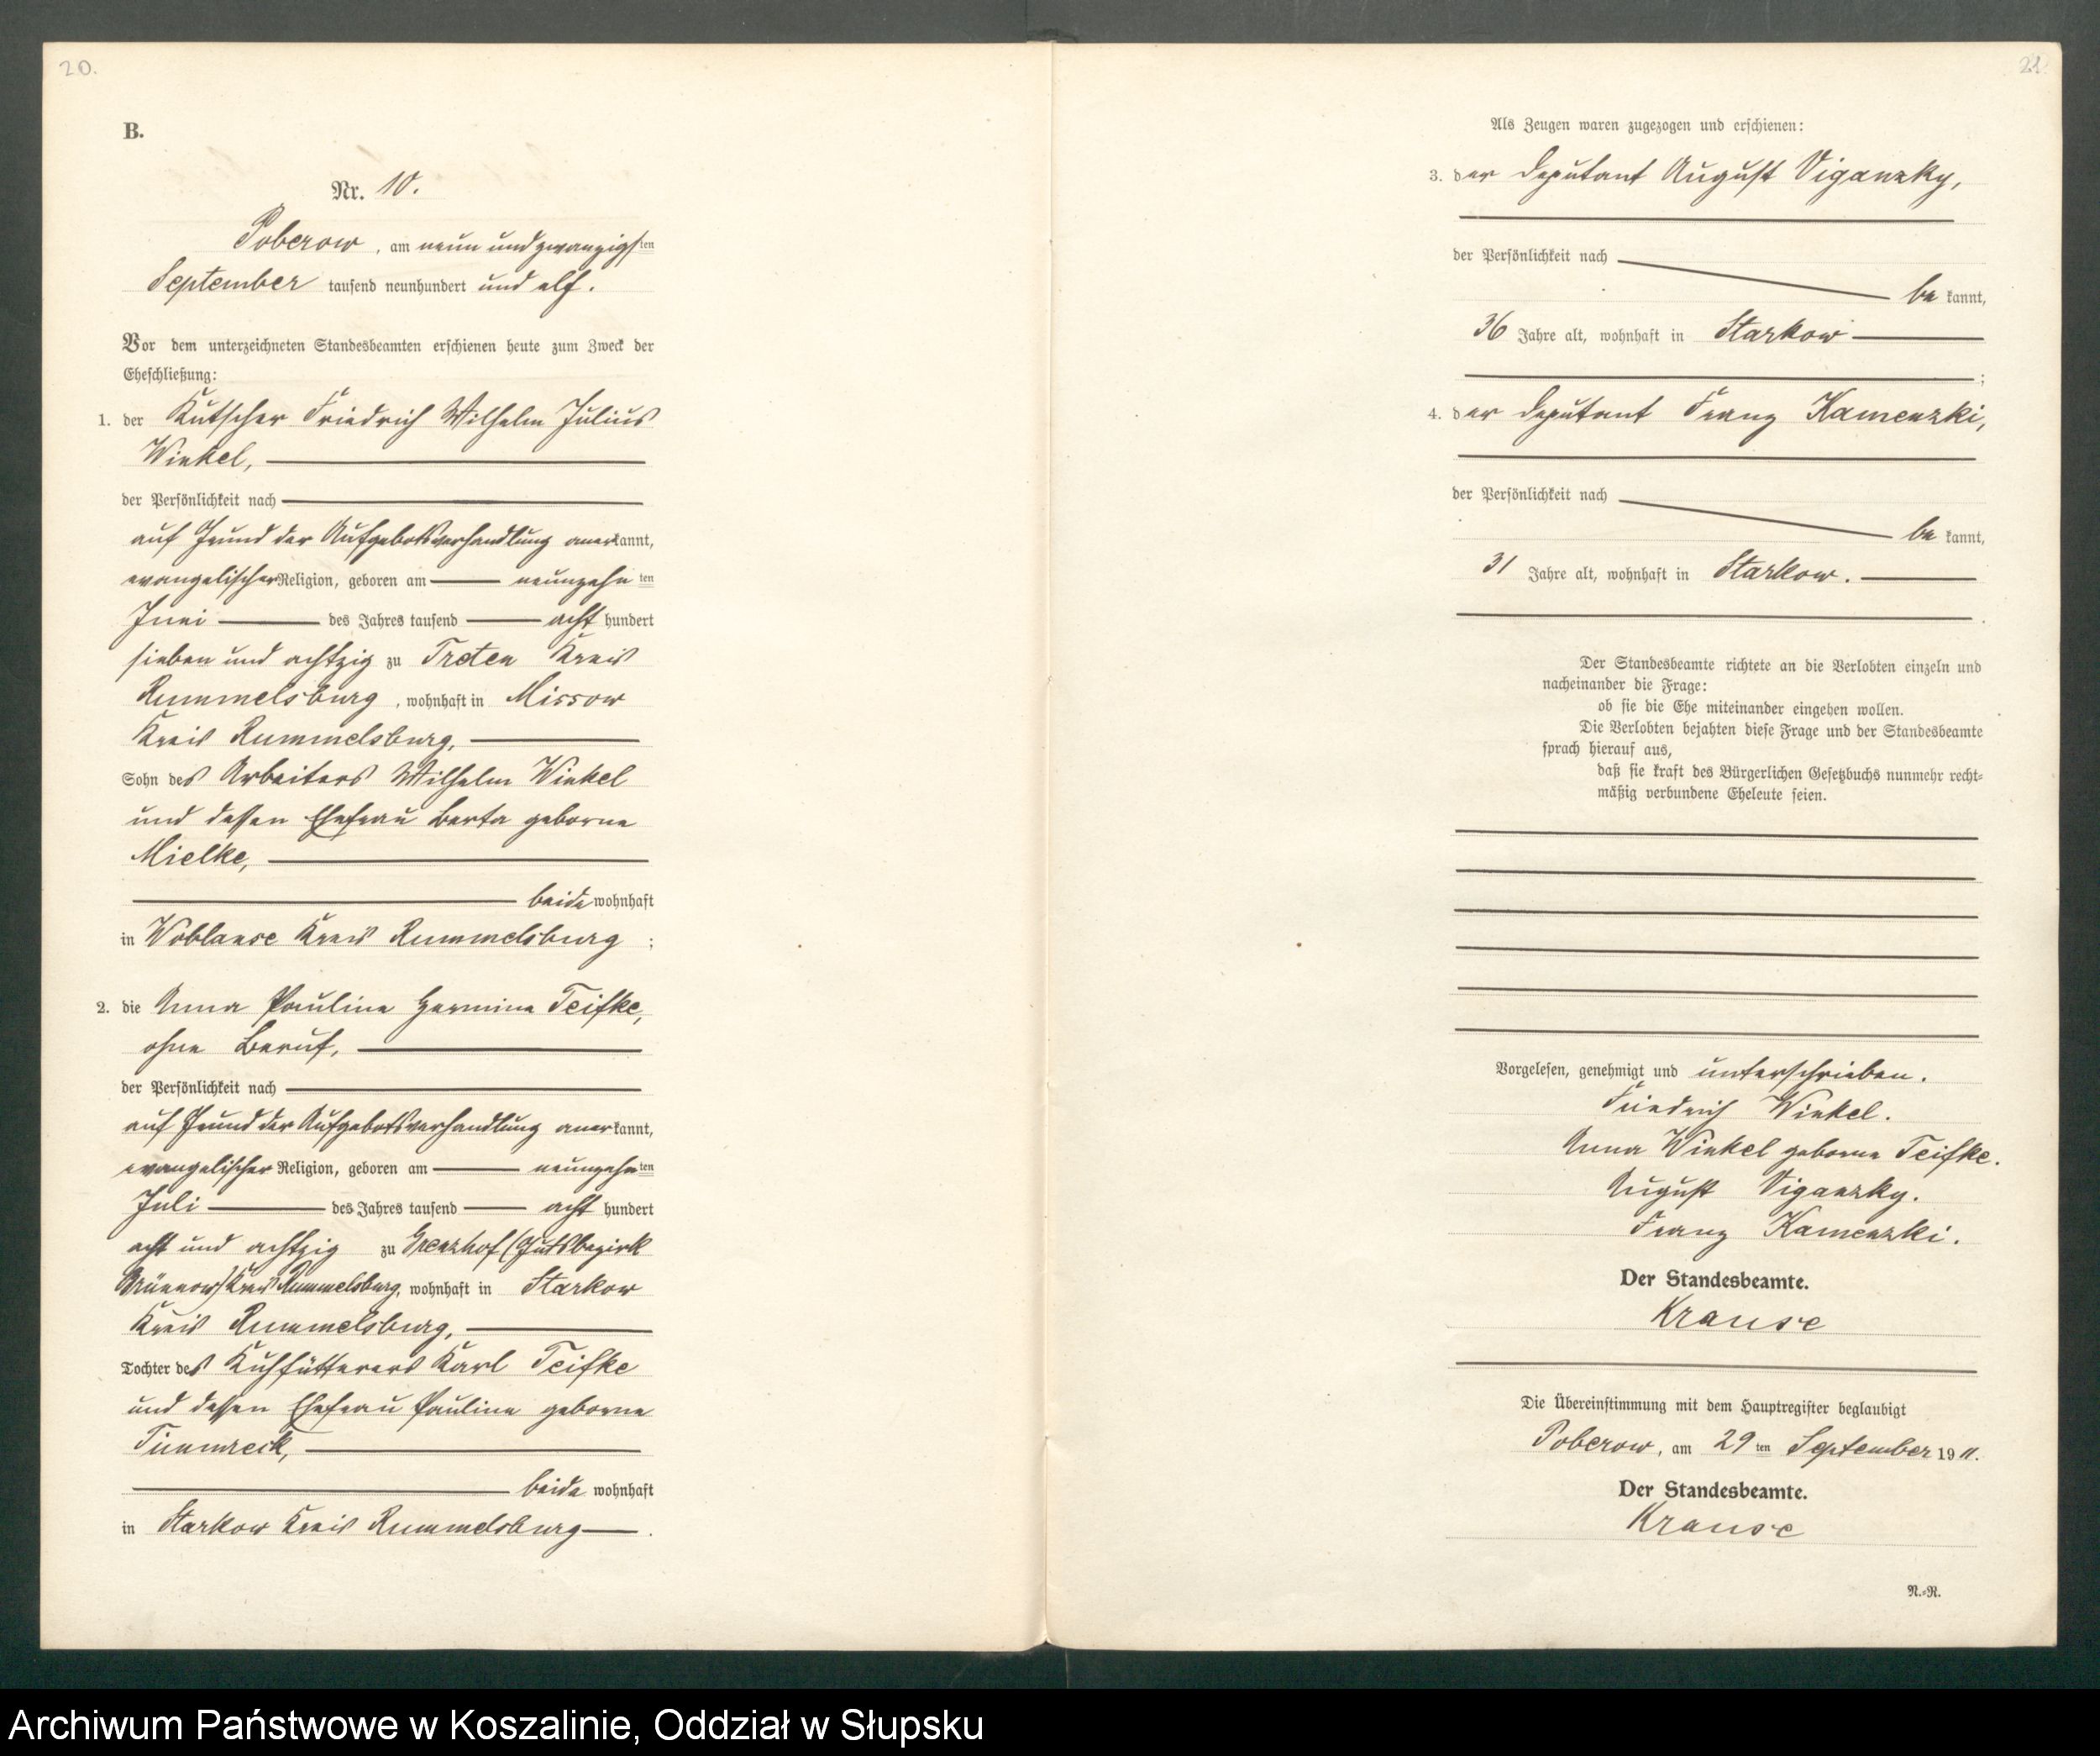 20.
B.
Nr. 10.
Poberow, am neun und zwanzigsten
September tausend neunhundert und elf.
Vor dem unterzeichneten Standesbeamten erschienen heute zum Zweck der
Eheschließung:
1. der Kutscher Friedrich Wilhelm Julius
Winkel,
der Persönlichkeit nach
auf Grund der Aufgebotsverhandlung anerkannt,
evangelischer Religion, geboren am neunzehnten
Juni des Jahres tausend acht hundert
sieben und achtzig zu Treten Kreis
Rummelsburg, wohnhaft in Missow
Kreis Rummelsburg,
Sohn des Arbeiters Wilhelm Winkel
und dessen Ehefrau Berta geborne
Mielke,
beide wohnhaft
in Woblanse Kreis Rummelsburg;
2. die Anna Pauline Hermine Teifke,
ohne Beruf,
der Persönlichkeit nach
auf Grund der Aufgebotsverhandlung anerkannt,
evangelischer Religion, geboren am neunzehnten
Juli des Jahres tausend acht hundert
acht und achtzig zu Grenzhof (Gutsbezirk
Grünnow) Kreis Rummelsburg, wohnhaft in Starkow
Kreis Rummelsburg,
Tochter des Kuhfütterers Karl Teifke
und dessen Ehefrau Pauline geborne
beide wohnhaft
in Starkow Kreis Rummelsburg.
Als Zeugen waren zugezogen und erschienen:
3. der Deputant August Viganzky,
der Persönlichkeit nach
bekannt,
36 Jahre alt, wohnhaft in Starkow
;
4. der Deputant Franz Kamenzki,
der Persönlichkeit nach
bekannt,
31 Jahre alt, wohnhaft in Starkow.
Der Standesbeamte richtete an die Verlobten einzeln und
nacheinander die Frage:
ob sie die Ehe miteinander eingehen wollen.
Die Verlobten bejahten diese Frage und der Standesbeamte
sprach hierauf aus,
daß sie kraft des Bürgerlichen Gesetzbuchs nunmehr recht-
mäßig verbundene Eheleute seien.
Vorgelesen, genehmigt und unterschrieben.
Friedrich Winkel.
Anna Winkel geborne Teifke.
August Viganzky.
Franz Kamenzki.
Der Standesbeamte.
Krause
Die Übereinstimmung mit dem Hauptregister beglaubigt
Poberow, am 29ten September 1911.
Der Standesbeamte.
Krause
N.-R.
Archiwum Państwowe w Koszalinie, Oddział w Słupsku